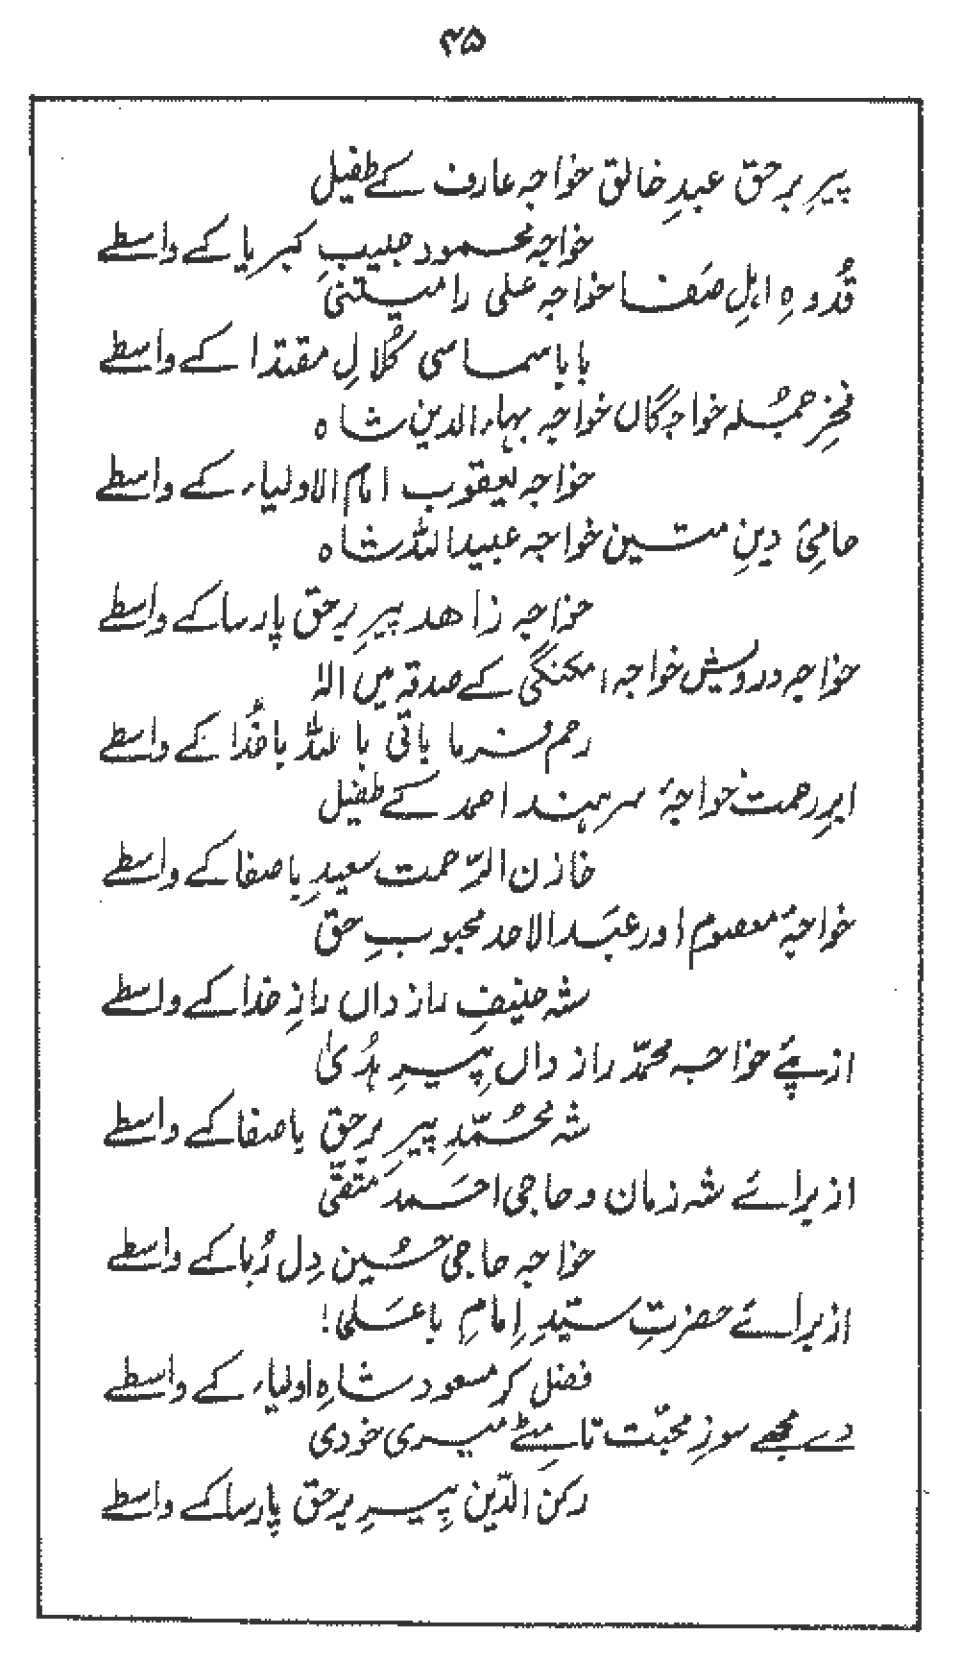 ۴۵
پیرِ برحق عبدِ خالق خواجہ عارف کے طفیل
خواجہ محمود حبیبِ کبریا کے واسطے
قُدوہِ اہلِ صَفا خواجہ علی رامیتنی
بابا سماسی کُلالِ مقتدا کے واسطے
فخرِ جُملہ خواجگاں خواجہ بہاءالدین شاہ
خواجہ یعقوب امام الاولیاء کے واسطے
حامئِ دینِ متین خواجہ عبیداللہ شاہ
خواجہ زاھد پیرِ برحق پارسا کے واسطے
خواجہ درویش خواجہ امکنگی کے صدقہ میں الہٰ
رحم فرما باقی با للہ باخُدا کے واسطے
ابرِ رحمت خواجۂ سرہند احمد کے طفیل
خازن الرّحمت سعیدِ باصفا کے واسطے
خواجۂ معصوم اور عبَدالاحد محبوبِ حق
شہ حنیفِ رازداں رازِ خدا کے واسطے
از پئے خواجہ محمّد رازداں پِیرِ ہُدیٰ
شہ محُمّدِ پیرِ برحق باصفا کے واسطے
از برائے شہ زمان و حاجی احَمد متّقی
خواجہ حاجی حُسین دِل رُبا کے واسطے
از برائے حضرتِ سیّدِ اِمامِ باعَلی!
فضل کر مسعود شاہِ اولیاء کے واسطے
دے مجھے سوزِ محبّت تا مِٹے میری خودی
رکن الدّین پِیرِ برحق پارسا کے واسطے